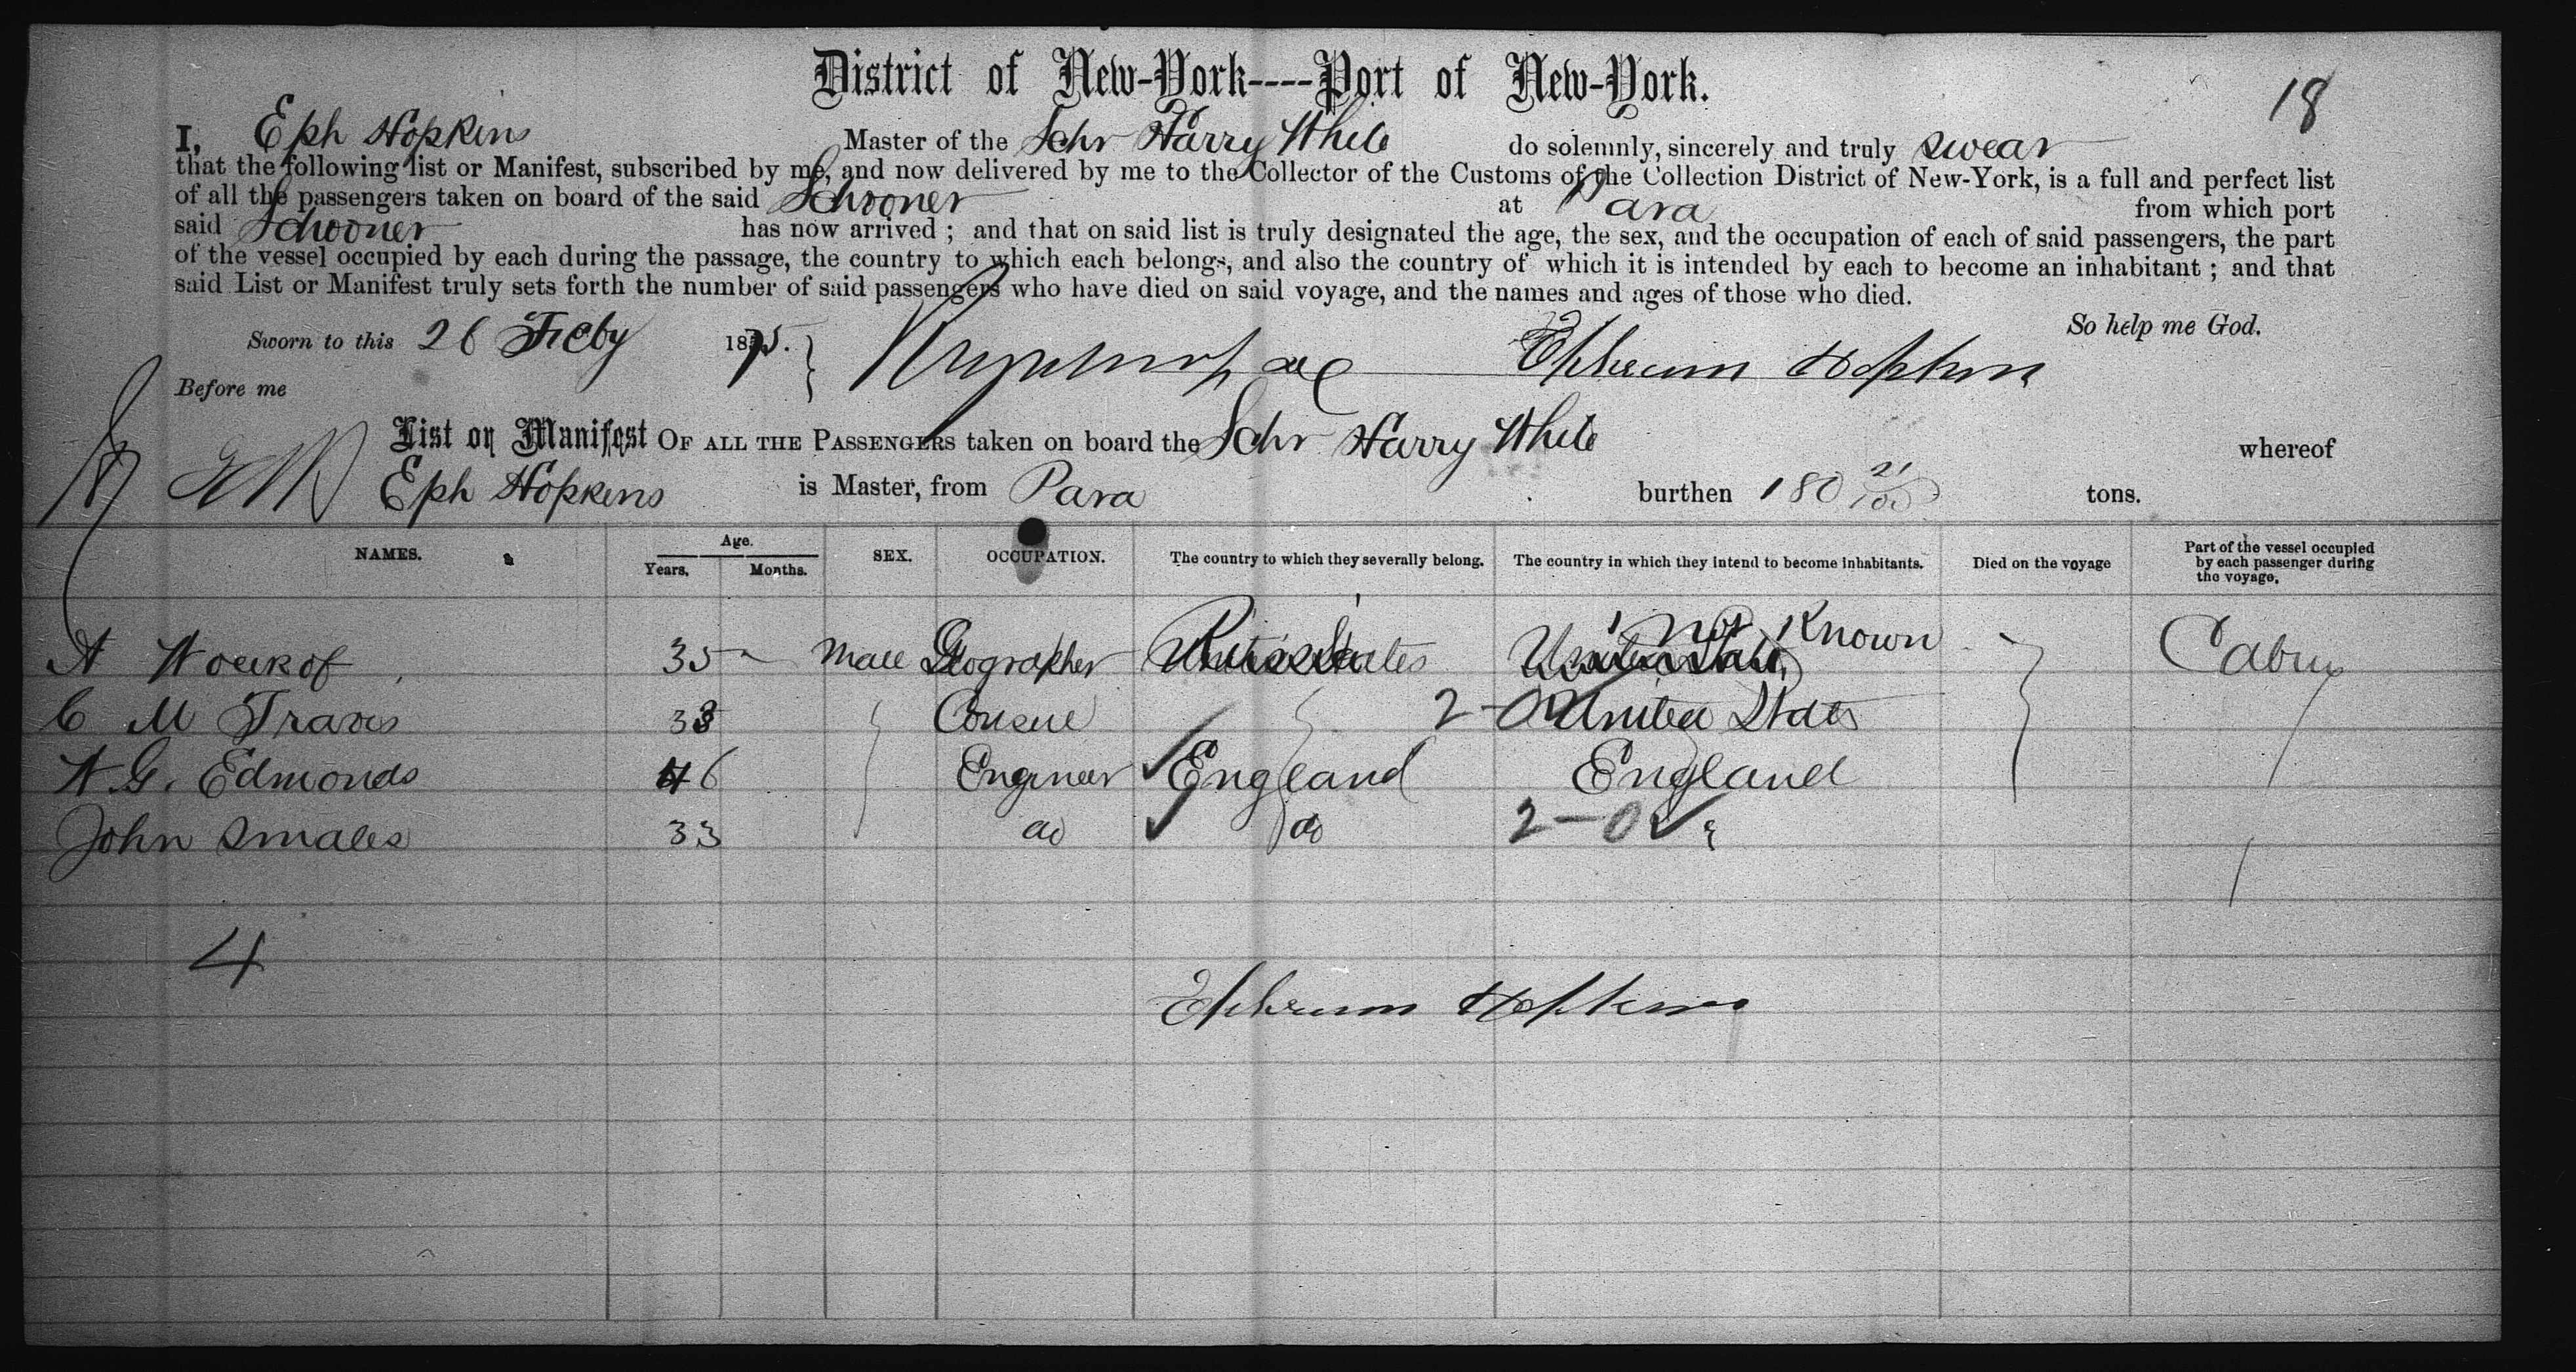 District of New-York----Port of New-York.
18
I, Eph Hopkins Master of the Schr Harry White do solemnly, sincerely and truly swear
that the following list or Manifest, subscribed by me, and now delivered by me to the Collector of the Customs of the Collection District of New-York, is a full and perfect list
of all the passengers taken on board of the said Schooner at Para from which port
said Schooner has now arrived ; and that on said list is truly designated the age, the sex, and the occupation of each of said passengers, the part
of the vessel occupied by each during the passage, the country to which each belongs, and also the country of which it is intended by each to become an inhabitant ; and that
said List or Manifest truly sets forth the number of said passengers who have died on said voyage, and the names and ages of those who died.
So help me God.
Sworn to this 26 Feby 1875. Ephraim Hopkins
Before me
List or Manifest OF ALL THE PASSENGERS taken on board the Schr Harry White whereof
Eph Hopkins is Master, from Para burthen 180 21/100 tons.
NAMES. Age. Years. Months. SEX. OCCUPATION. The country to which they severally belong. The country in which they intend to become inhabitants. Died on the voyage Part of the vessel occupied by each passenger during the voyage.
A 35 Male Geographer Russia Not Known Cabin
C M Travis 33 2-0 United States
A G. Edmonds 46 Engineer England England
John Smales 33 do do 2-0
4
Ephraim Hopkins